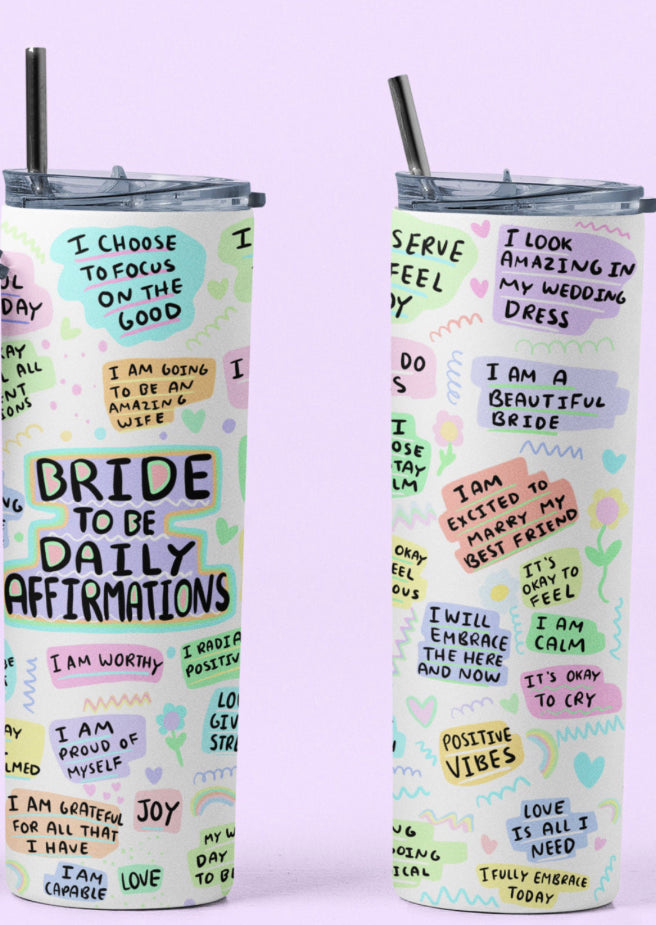 I CHOOSE
TO FOCUS
ON THE
GOOD
DAY
ALL
I AM GOING
TO BE AN
AMAZING
WIFE
I
BRIDE
TO BE
DAILY
AFFIRMATIONS
I AM WORTHY
I AM
PROUD OF
MYSELF
I AM GRATEFUL
FOR ALL THAT
I HAVE
JOY
MY
DAY
TO
I AM
CAPABLE
LOVE
I LOOK
AMAZING IN
MY WEDDING
DRESS
DO
I AM A
BEAUTIFUL
BRIDE
I
I AM
EXCITED TO
MARRY MY
BEST FRIEND
OKAY
IT'S
OKAY TO
FEEL
I WILL
EMBRACE
THE HERE
AND NOW
I AM
CALM
IT'S OKAY
TO CRY
POSITIVE
VIBES
LOVE
IS ALL I
NEED
I FULLY EMBRACE
TODAY